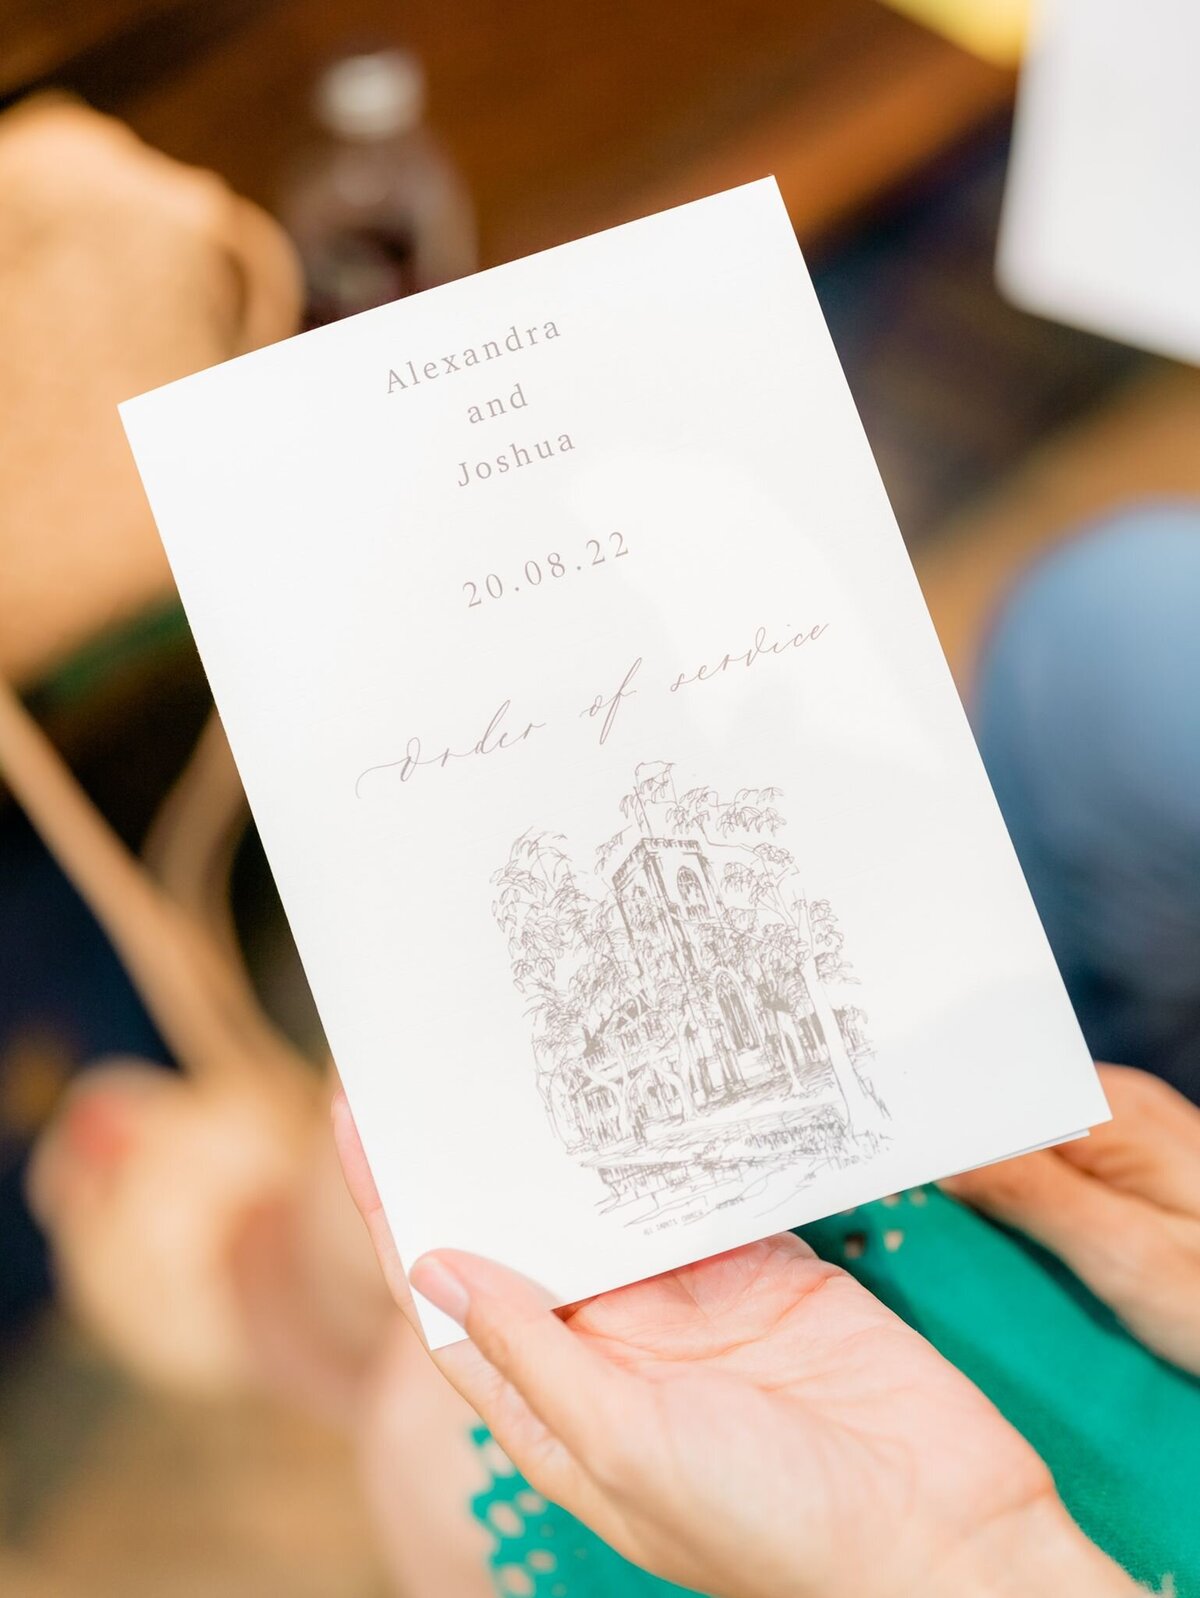 Alexandra
and
Joshua
20.08.22
order of service
ALL SAINTS CHURCH